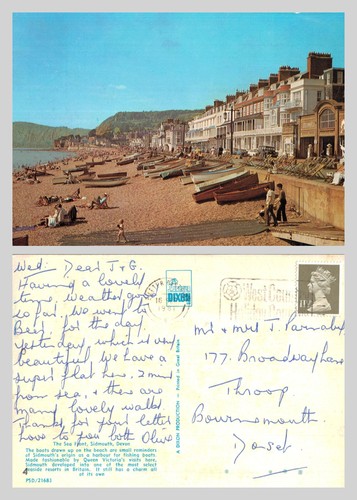 Wed: Dear J & G.
Having a lovely
time, weather good
so far. We went to
Beer for the day
yesterday, which is very
beautiful. We have a
super flat here, 2 mins
from sea, & there are
many lovely walks.
Thanks for your letter
love to you both Olive
The Sea Front, Sidmouth, Devon
The boats drawn up on the beach are small reminders
of Sidmouth's origin as a harbour for fishing boats.
Made fashionable by Queen Victoria's visits here,
Sidmouth developed into one of the most select
seaside resorts in Britain. It still has a charm all
of its own.
4
PSD/21681
DIXON
A DIXON PRODUCTION — Printed in Great Britain
West Country
Mr & Mrs J. Parnaby
177. Broadway Lane
Throop
Bournemouth.
Dorset.